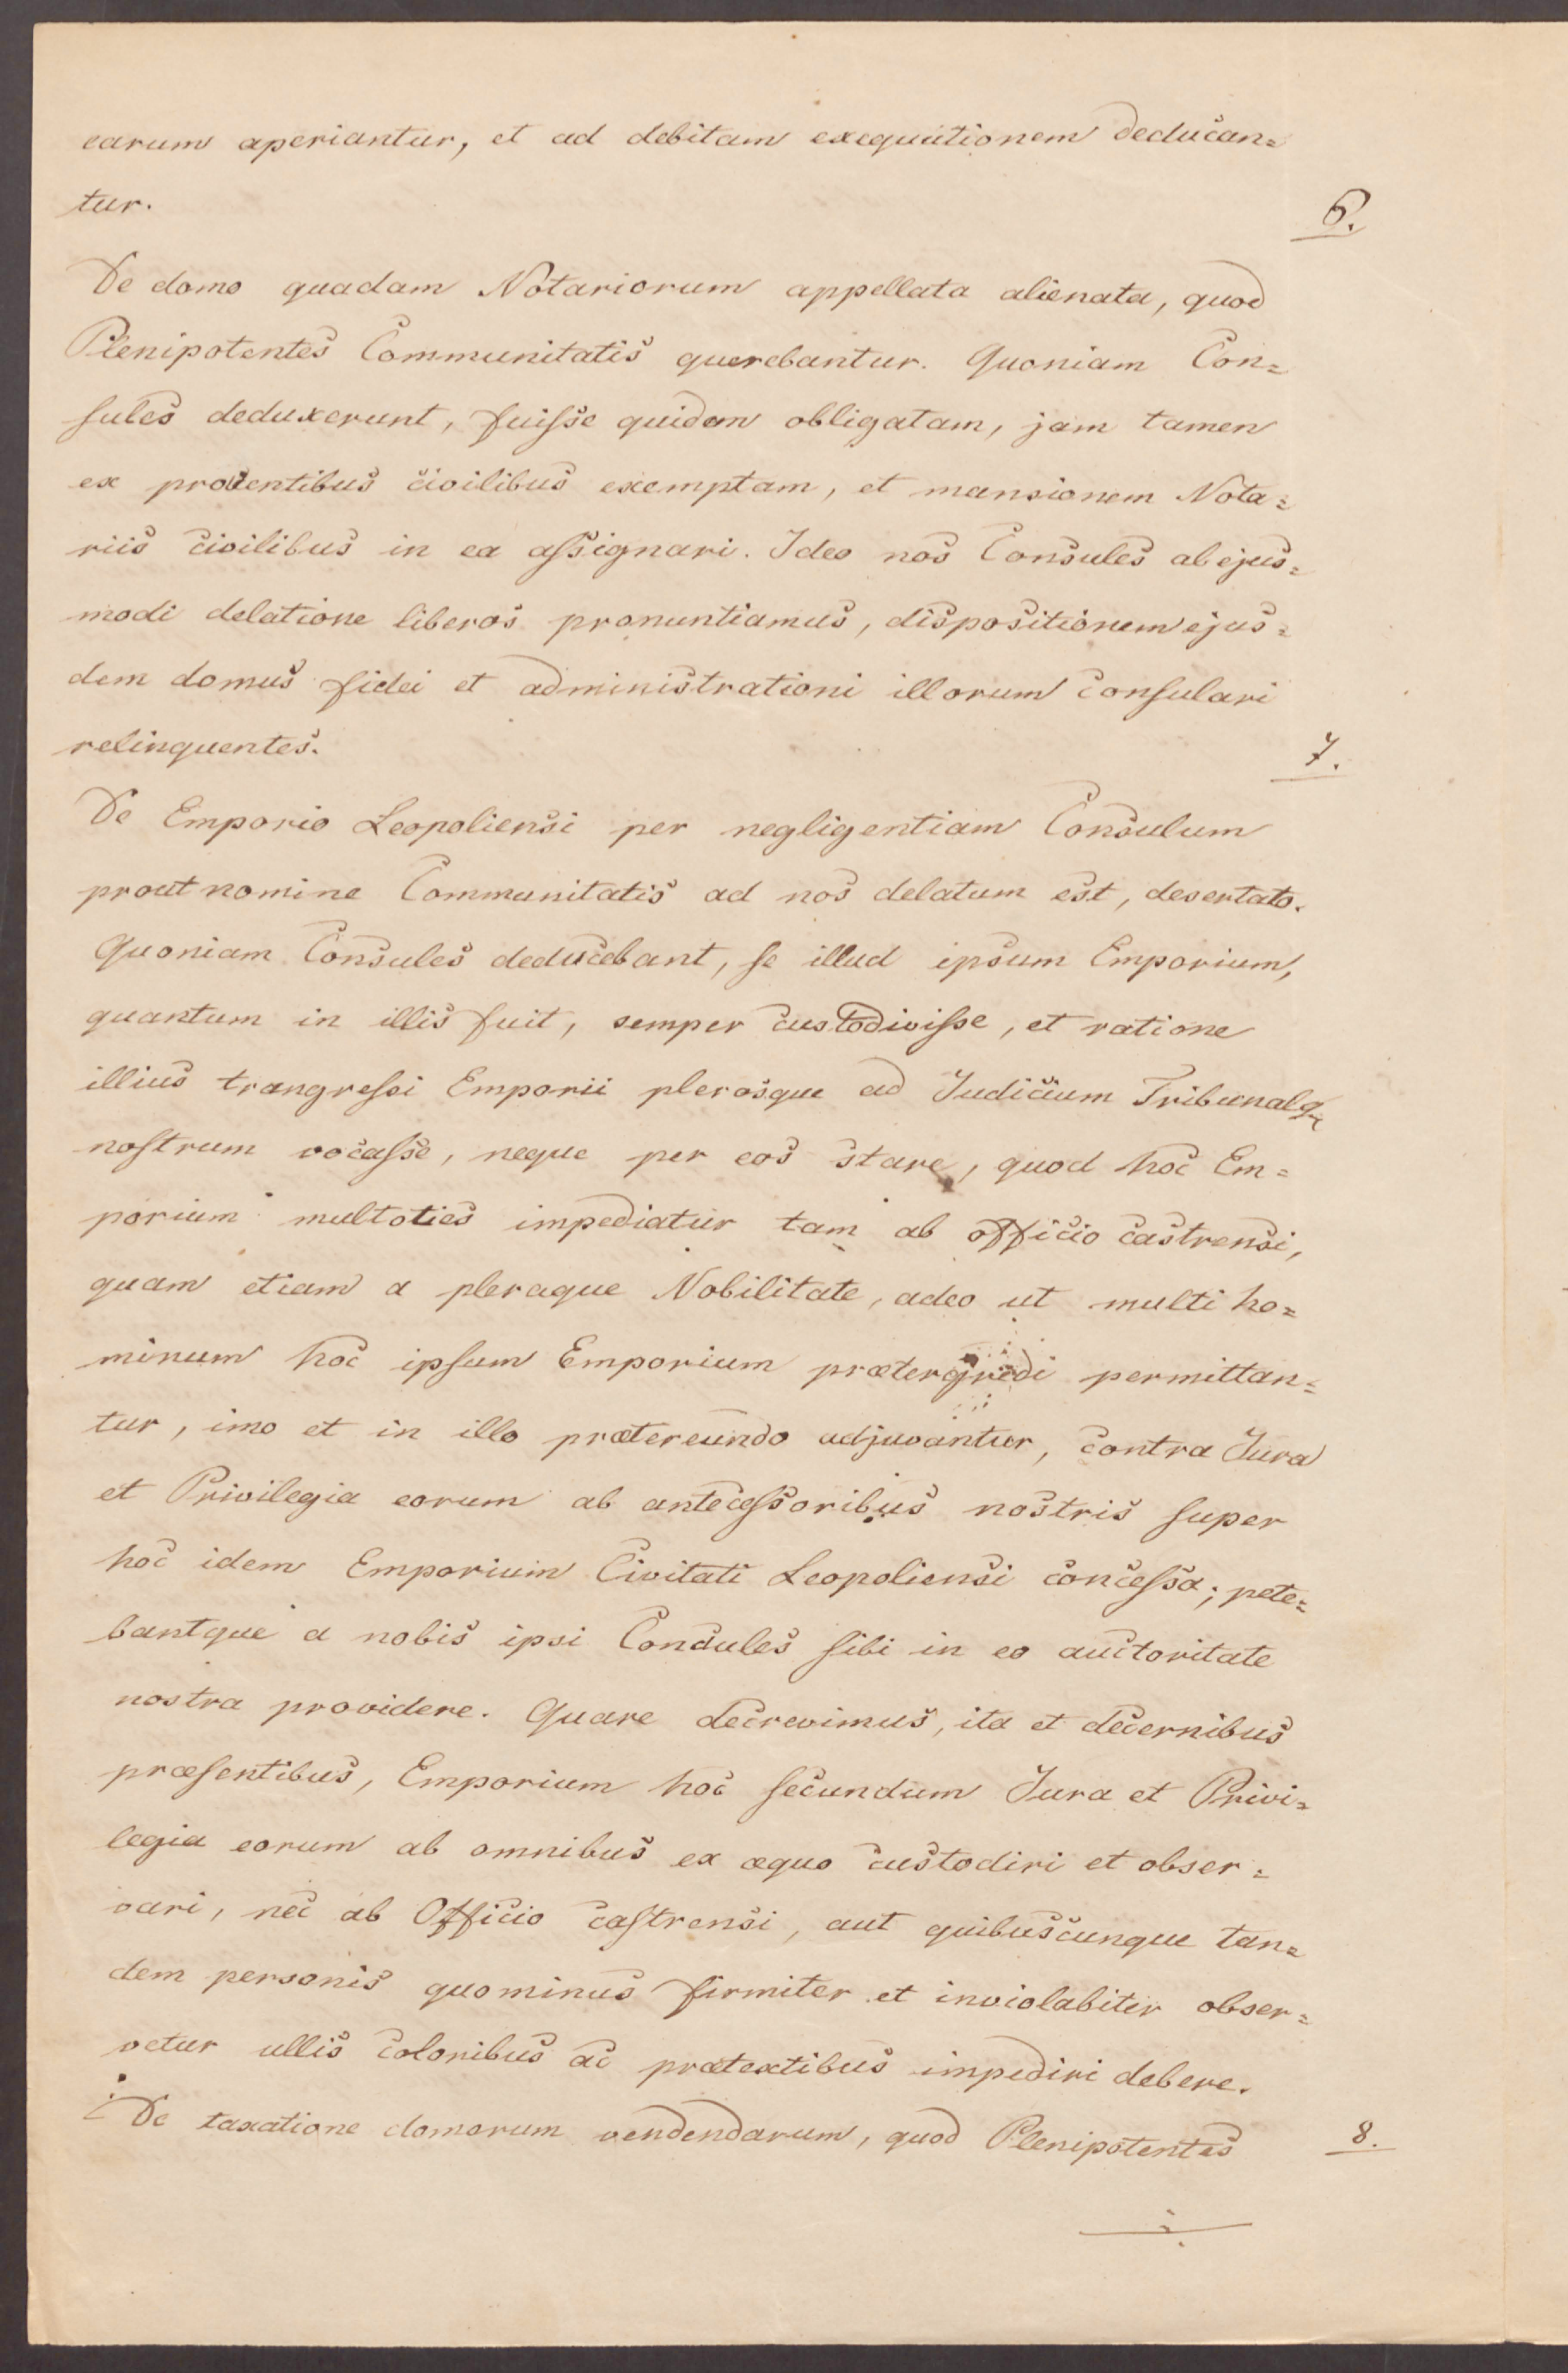 earum aperiantur, et ad debitam exequutionem deducan=
tur.
6.
De domo quadam Notariorum appellata alienata, quod
Plenipotentes Communitatis querebantur. Quoniam Con=
sules deduxerunt, fuisse quidem obligatam, jam tamen
ex proventibus civilibus exemptam, et mansionem Nota=
riis civilibus in ea assignari. Ideo nos Consules ab ejus=
modi delatione liberos pronuntiamus, dispositionem ejus=
dem domus fidei et administrationi illorum consulari
relinquentes.
7.
De Emporio Leopoliensi per negligentiam Consulum
prout nomine Communitatis ad nos delatum est, desertato.
Quoniam Consules deducebant, se illud ipsum Emporium,
quantum in illis fuit, semper custodivisse, et ratione
illius trangressi Emporii plerosque ad Judicium Tribunalq
nostrum vocasse, neque per eos stare, quod hoc Em=
porium multoties impediatur tam ab officio castrensi,
quam etiam a pleraque Nobilitate, adeo ut multi ho=
minum hoc ipsum Emporium prætergredi permittan=
tur, imo et in illo prætereundo adjuvantur, contra Jura
et Privilegia eorum ab antecessoribus nostris super
hoc idem Emporium Civitati Leopoliensi concessa; pete=
bantque a nobis ipsi Consules sibi in eo auctoritate
nostra providere. Quare decrevimus, ita et decernibus
præsentibus, Emporium hoc secundum Jura et Privi=
legia eorum ab omnibus ex æquo custodiri et obser=
vari, nec ab Officio castrensi, aut quibuscunque tan=
dem personis quominus firmiter et inviolabiter obser=
vetur ullis coloribus ac prætextibus impediri debere.
De taxatione domorum vendendarum, quod Plenipotentes
8.